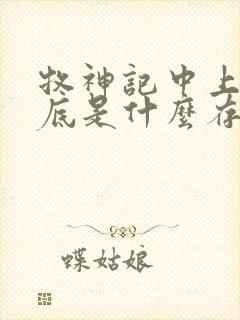 牧神記中上
底是什麼存
蝶姑娘